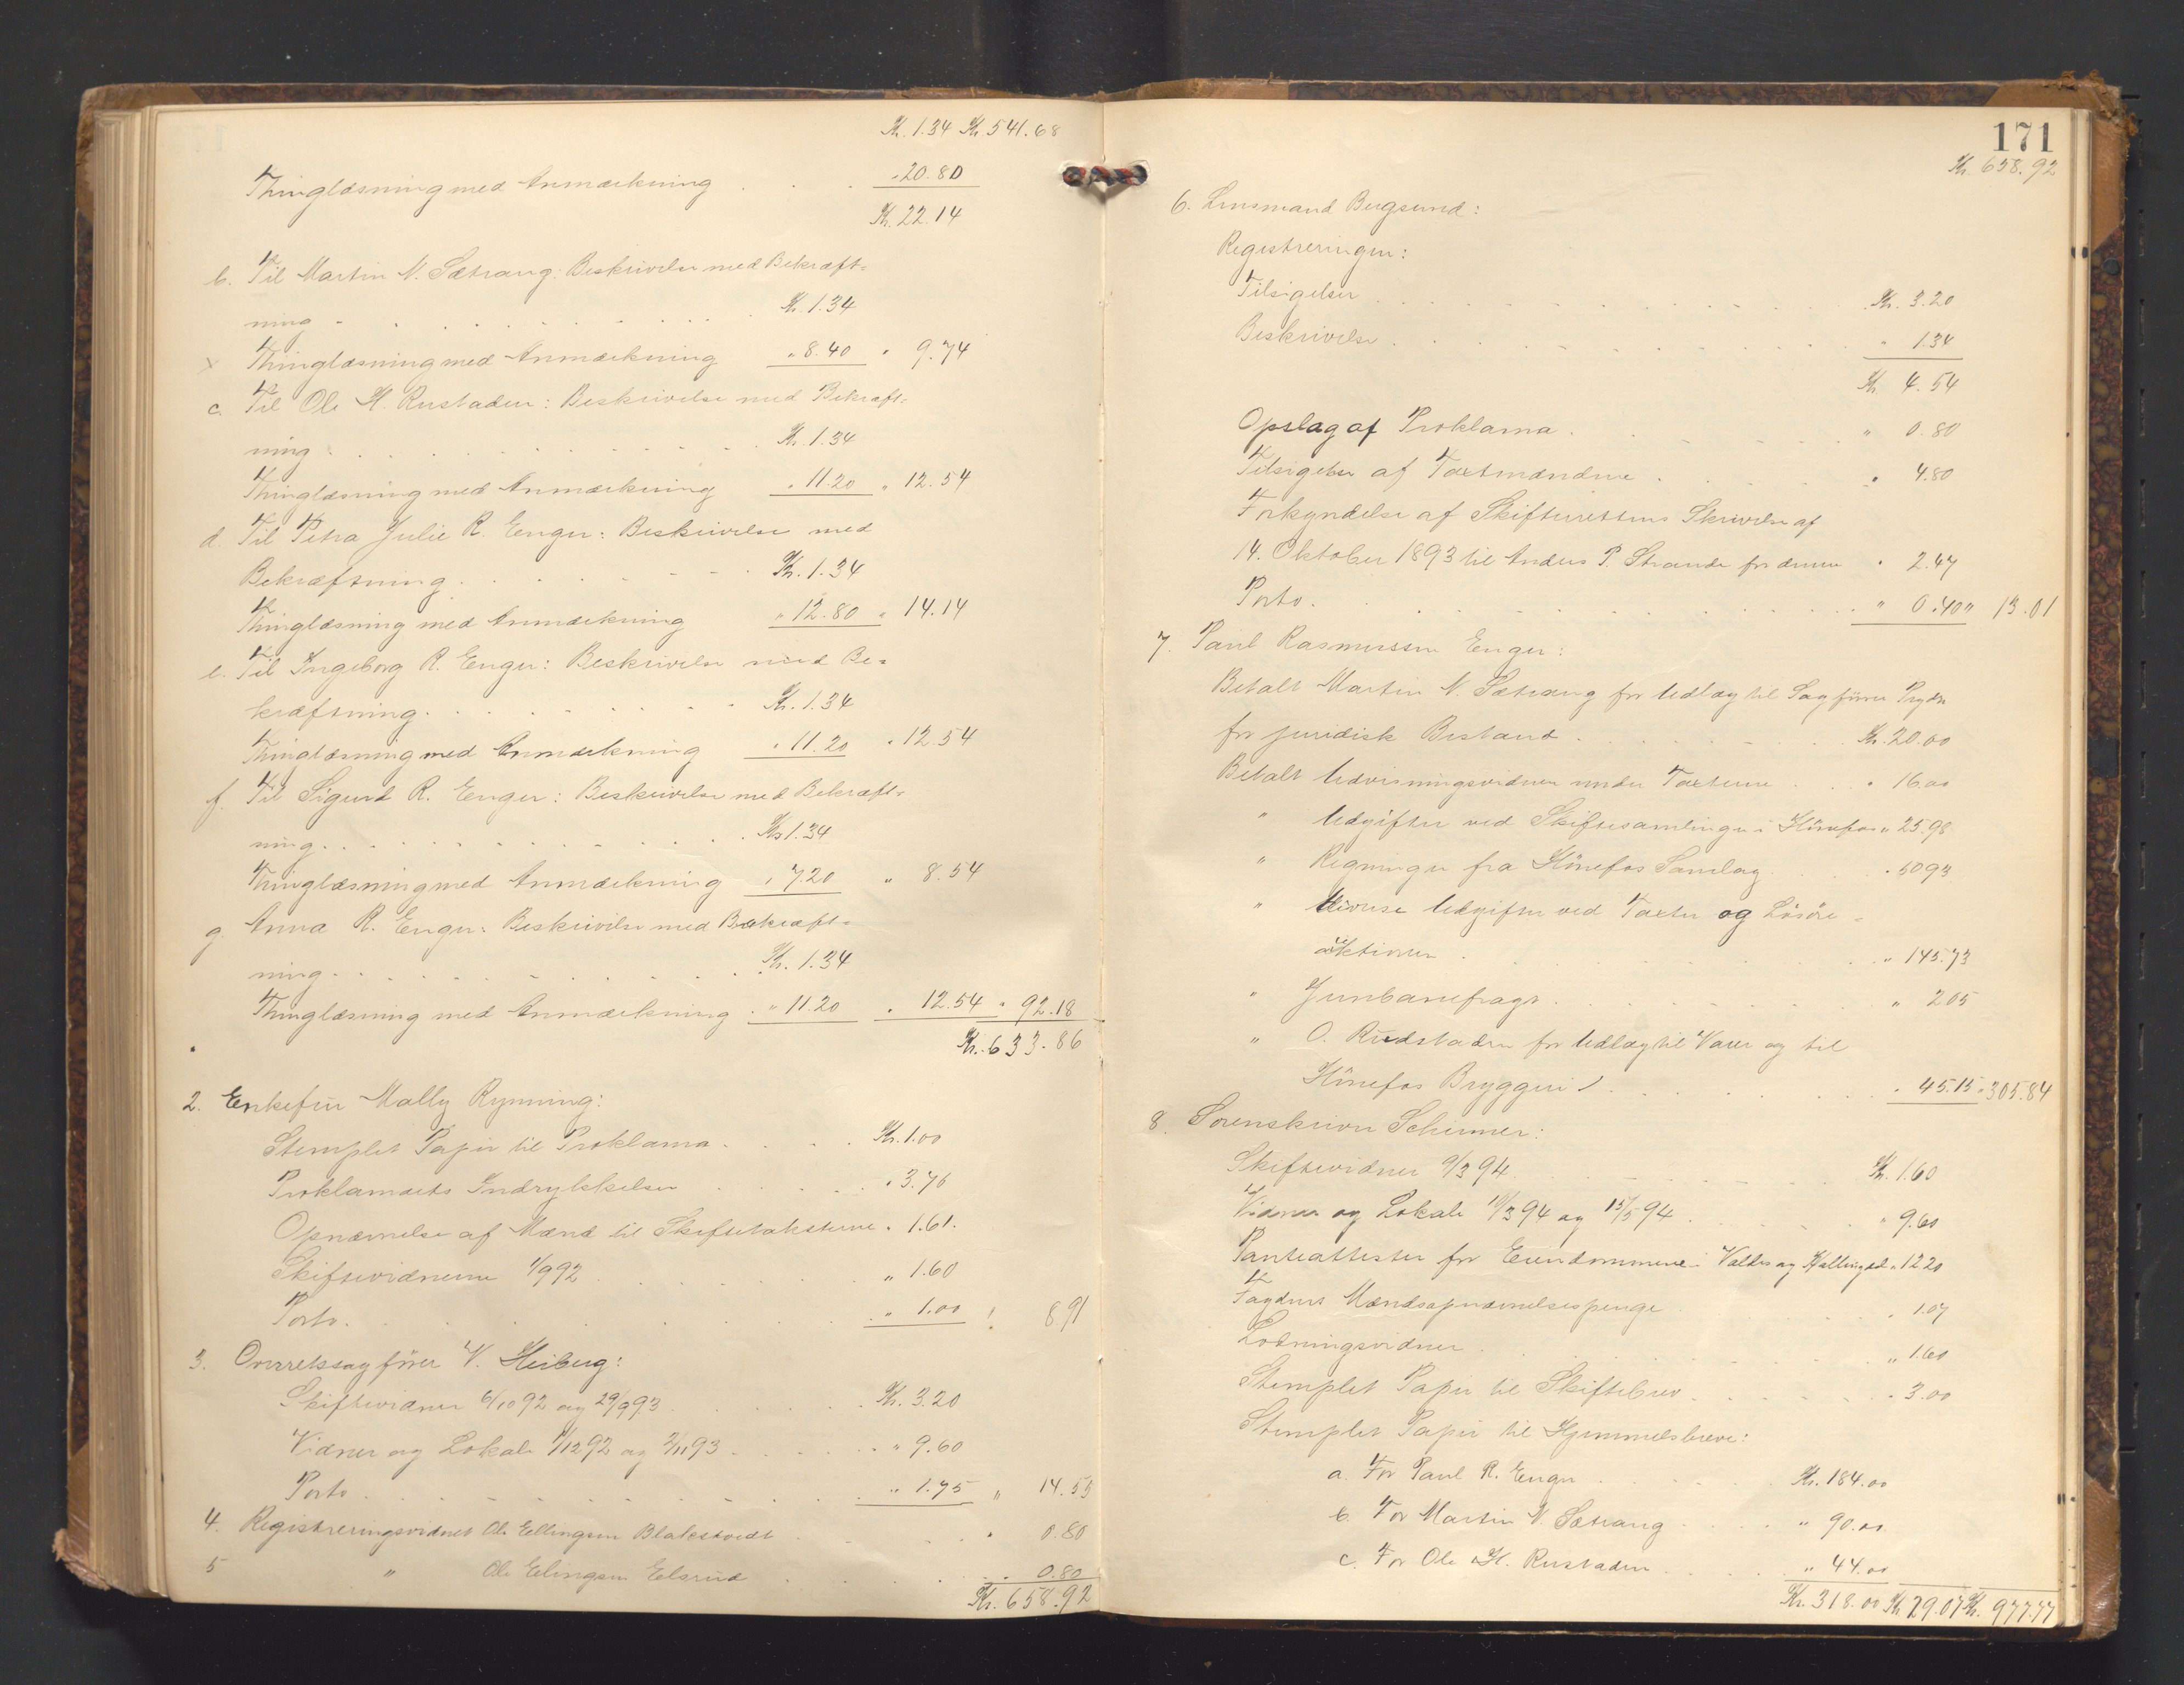 Kr. 1.34 Kr. 541.68
Thinglæsning med Anmærkning . . . " 20.80
Kr. 22.14
b. Til Martin N. Sætrang: Beskrivelse med Bekræft-
ning . . . Kr. 1.34
x Thinglæsning med Anmærkning " 8.40 " 9.74
c. Til Ole H. Rustaden: Beskrivelse med Bekræft-
ning . . . Kr. 1.34
Thinglæsning med Anmærkning " 11.20 " 12.54
d. Til Petra Julie R. Enger: Beskrivelse med
Bekræftning . . . Kr. 1.34
Thinglæsning med Anmærkning " 12.80 " 14.14
e. Til Ingeborg R. Enger: Beskrivelse med Be-
kræftning . . . Kr. 1.34
Thinglæsning med Anmærkning " 11.20 " 12.54
f. Til Sigurd R. Enger: Beskrivelse med Bekræft-
ning . . . Kr. 1.34
Thinglæsning med Anmærkning " 7.20 " 8.54
g Anna R. Enger: Beskrivelse med Bekræft-
ning . . . Kr. 1.34
Thinglæsning med Anmærkning . " 11.20 " 12.54 " 92.18
Kr. 633.86
2. Enkefru Mally Rynning:
Stemplet Papir til Proklama . . . Kr. 1.00
Proklamaets Indrykkelse . . . " 3.70
Opnævnelse af Mænd til Skiftetaksterne " 1.61.
Skiftevidnerne 1/992 . . . " 1.60
Porto . . . " 1.00 " 8.91
3. Overretssagfører V. Heiberg:
Skiftevidner 6/1092 og 29/993 . . . Kr. 3.20
Vidner og Lokale 1/1292 og 2/1193 . . . " 9.60
Porto . . . " 1.75 " 14.55
4. Registreringsvidnet Ole Ellingsen Blakstvedt . . . " 0.80
5 " Ole Elingsen Elsrud . . . " 0.80
Kr. 658.92
171
Kr. 658.92
6. Lensmand Bergsund:
Registreringen:
Tilsigelser . . . Kr. 3.20
Beskrivelse . . . " 1.34
Kr. 4.54
Opslag af Proklama . . . " 0.80
Tilsigelse af Taxtmændene . . . " 4.80
Forkyndelse af Skifterettens Skrivelse af
14. Oktober 1893 til Anders P. Strande for denne " 2.47
Porto . . . " 0.40 " 13.01
7. Paul Rasmussen Enger:
Betalt Martin N. Sætrang for Udlæg til Sagfører Prydz
for juridisk Bistand . . . Kr. 20.00
Betalt Udvisningsvidner under Taxterne . . . " 16.00
" Udgifter ved Skiftesamlinger i Hönefos " 25.98
" Regninger fra Hönefos Samlag . . . " 50 93
" diverse Udgifter ved Taxter og Lösöre-
auktionen . . . " 145.73
" Jernbanefragt . . . " 2 05
" O. Rudstaden for Udlæg til Varer og til
Hönefos Bryggeri . . . " 45.15 " 305.84
8. Sorenskriver Schirmer:
Skiftevidner 9/3 94 . . . Kr. 1.60
Vidner og Lokale 10/3 94 og 15/5 94 . . . " 9.60
Panteattester for Eiendommene i Valdres og Hallingdal " 12 20
Fogdens Mændsopnævnelsespenge . . . " 1.07
Lodningsvidner . . . " 1.60
Stemplet Papir til Skiftebrev . . . " 3.00
Stemplet Papir til Hjemmelsbreve:
a. For Paul R. Enger . . . Kr. 184.00
b. For Martin N. Sætrang . . . " 90.00
c. For Ole H. Rustaden . . . " 44.00
Kr. 318.00 Kr. 29.07 Kr. 977.77